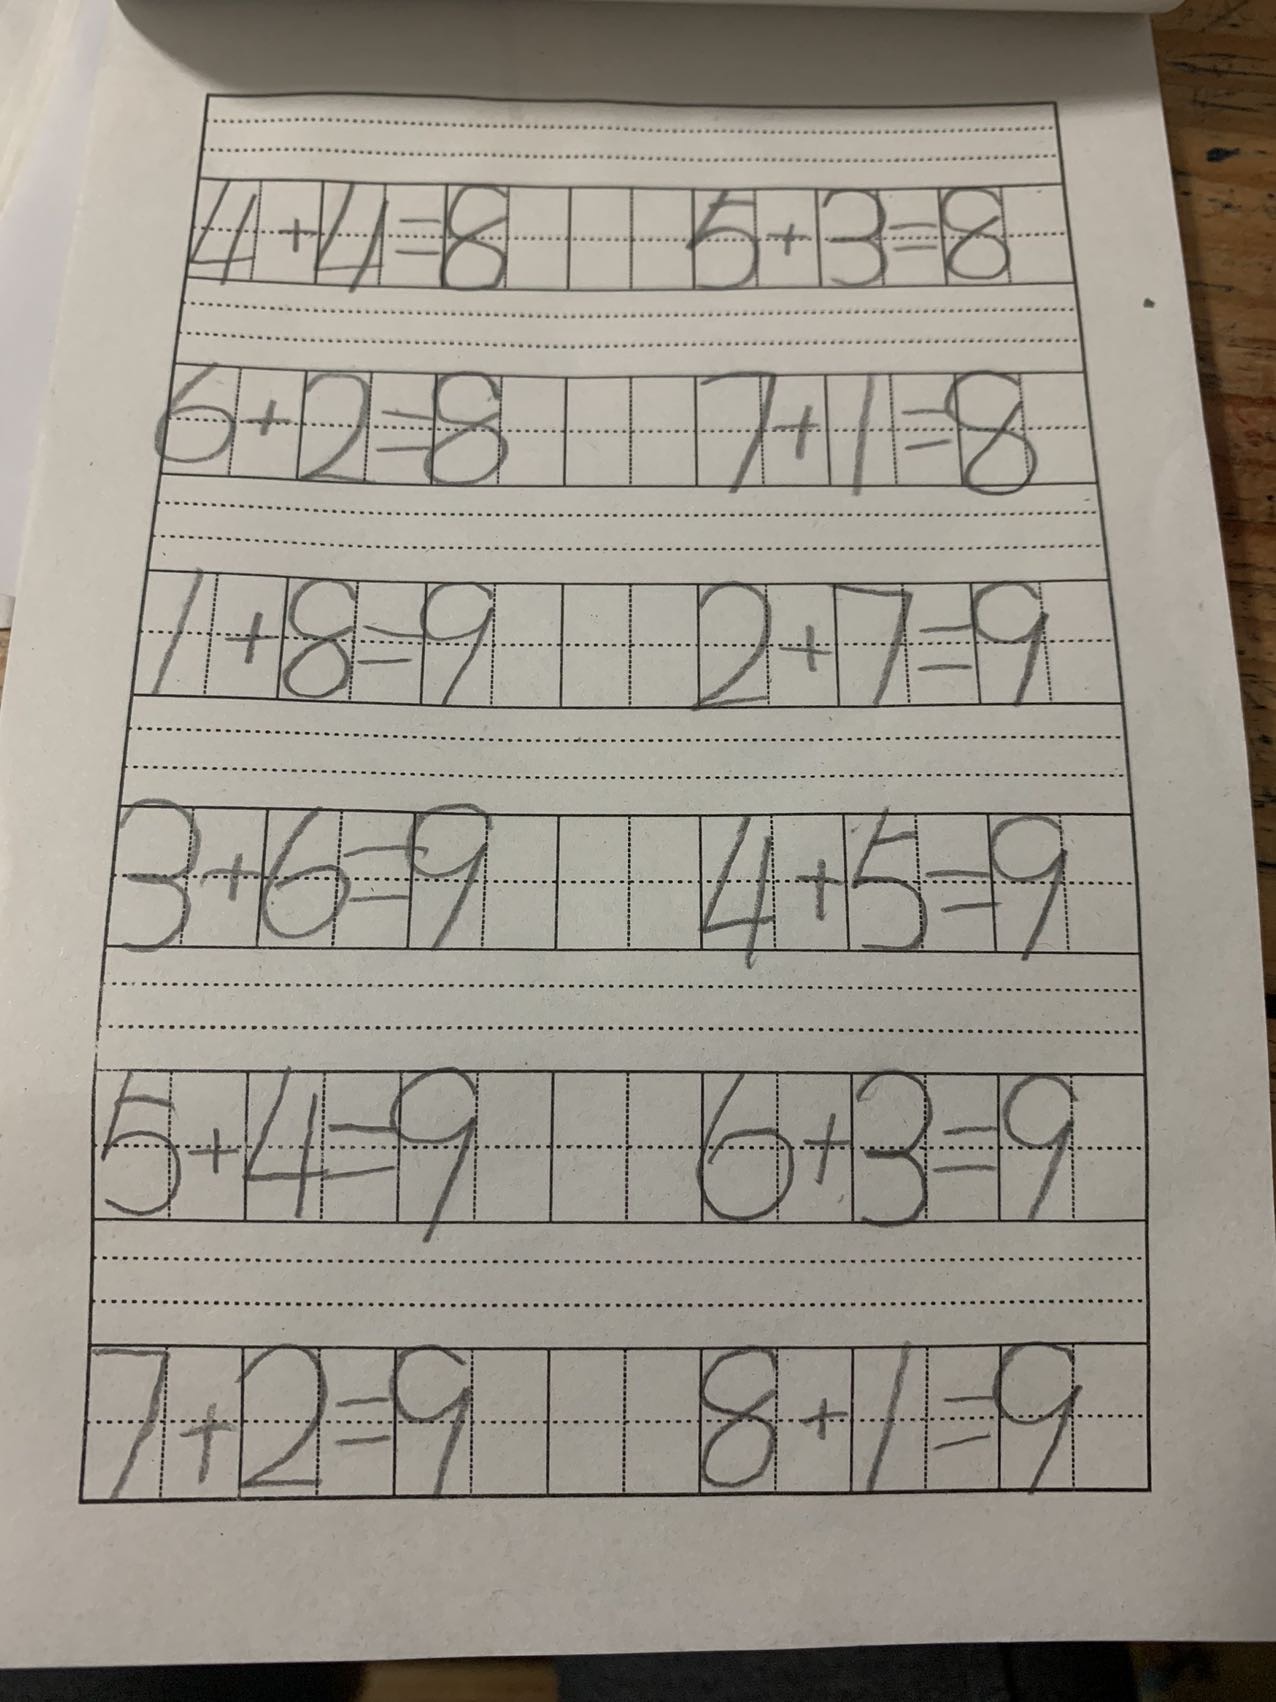 4+4=8 5+3=8
6+2=8 7+1=8
1+8=9 2+7=9
3+6=9 4+5=9
5+4=9 6+3=9
7+2=9 8+1=9